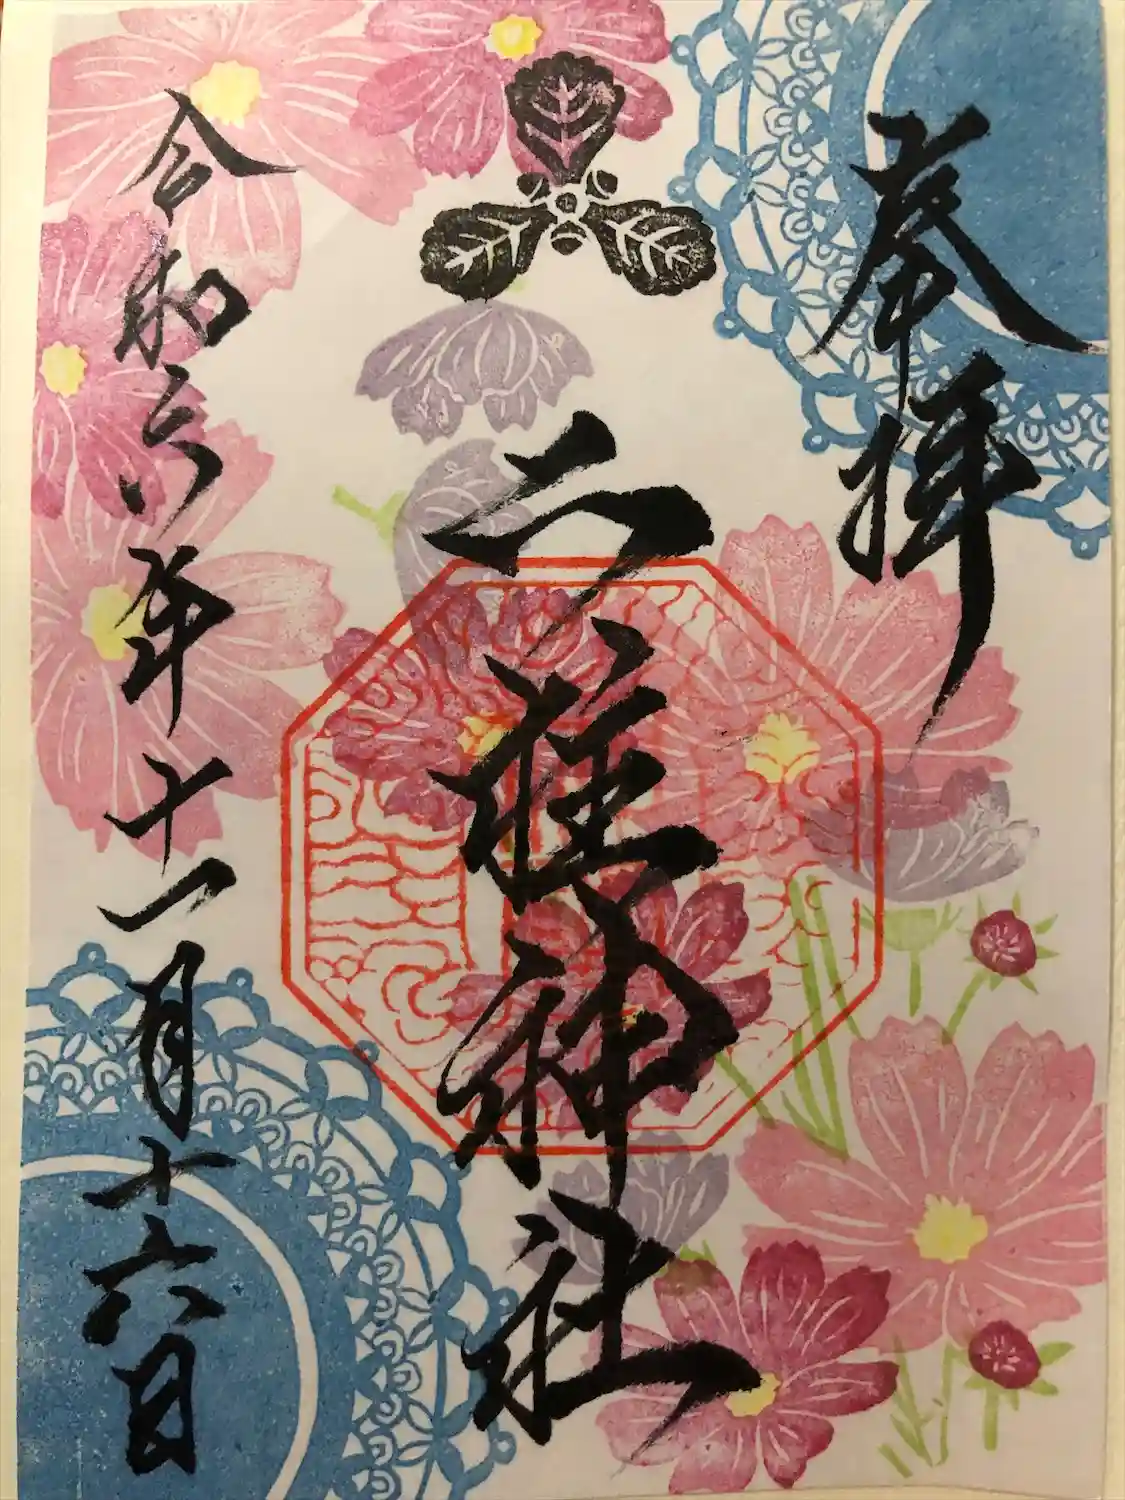 奉拝
二柱神社
令和六年十一月十六日